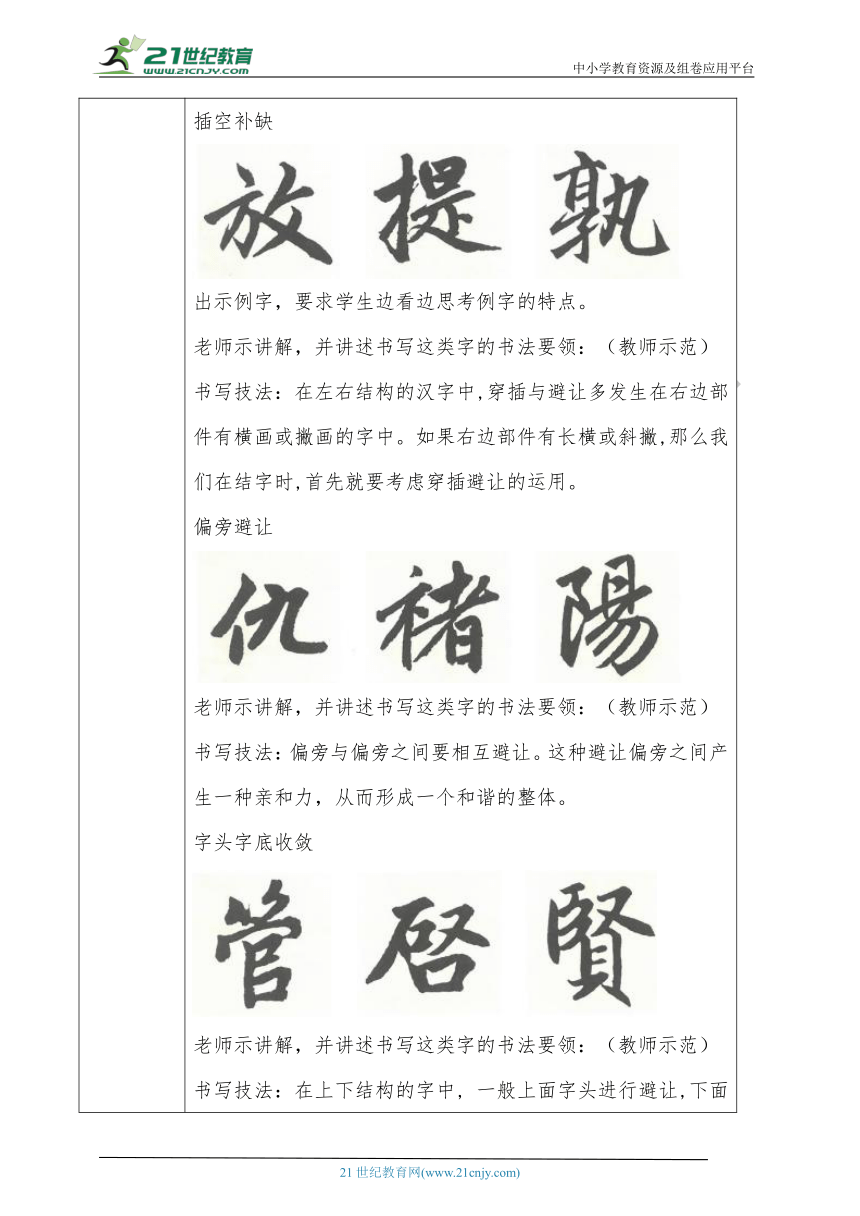 21世纪教育
WWW.21CNJY.COM
中小学教育资源及组卷应用平台
插空补缺
放 提 孰
出示例字，要求学生边看边思考例字的特点。
老师示讲解，并讲述书写这类字的书法要领：（教师示范）
书写技法：在左右结构的汉字中,穿插与避让多发生在右边部
件有横画或撇画的字中。如果右边部件有长横或斜撇,那么我
们在结字时,首先就要考虑穿插避让的运用。
偏旁避让
仇 褚 陽
老师示讲解，并讲述书写这类字的书法要领：（教师示范）
书写技法：偏旁与偏旁之间要相互避让。这种避让偏旁之间产
生一种亲和力，从而形成一个和谐的整体。
字头字底收敛
管 啓 賢
老师示讲解，并讲述书写这类字的书法要领：（教师示范）
书写技法：在上下结构的字中，一般上面字头进行避让,下面
21世纪教育网(www.21cnjy.com)